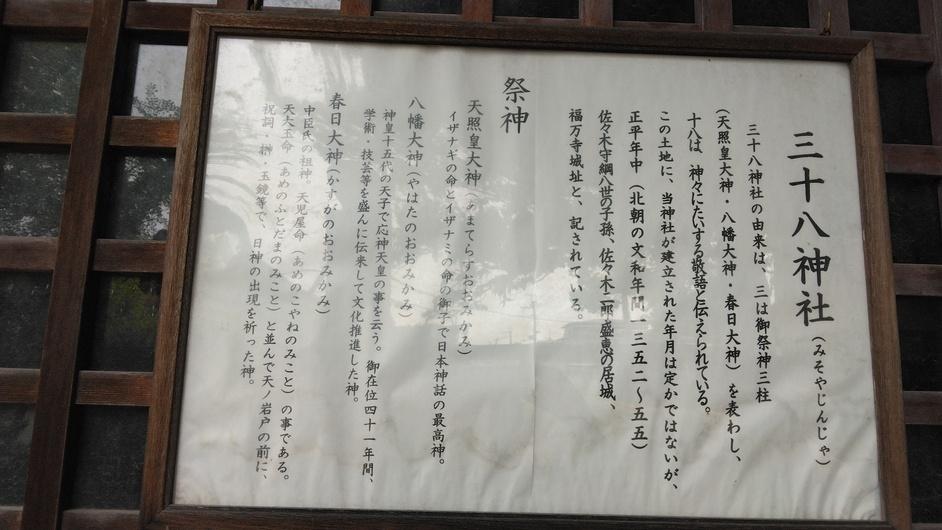 三十八神社(みそやじんじゃ)
三十八神社の由来は、三は御祭神三柱
(天照皇大神・八幡大神・春日大神)を表わし、
十八は、神々にたいする敬語と伝えられている。
この土地に、当神社が建立された年月は定かではないが、
正平年中(北朝の文和年間一三五二～五五)
佐々木守綱八世の子孫、佐々木二郎盛恵の居城、
福万寺城址と、記されている。
祭神
天照皇大神(あまてらすおおみかみ)
イザナギの命とイザナミの命の御子で日本神話の最高神。
八幡大神(やはたのおおみかみ)
神皇十五代の天子で応神天皇の事を云う。御在位四十一年間、
学術・技芸等を盛んに伝来して文化推進した神。
春日大神(かすがのおおみかみ)
中臣氏の祖神。天児屋命(あめのこやねのみこと)の事である。
天太玉命(あめのふとだまのみこと)と並んで天ノ岩戸の前に、
祝詞・榊・玉鏡等で、日神の出現を祈った神。